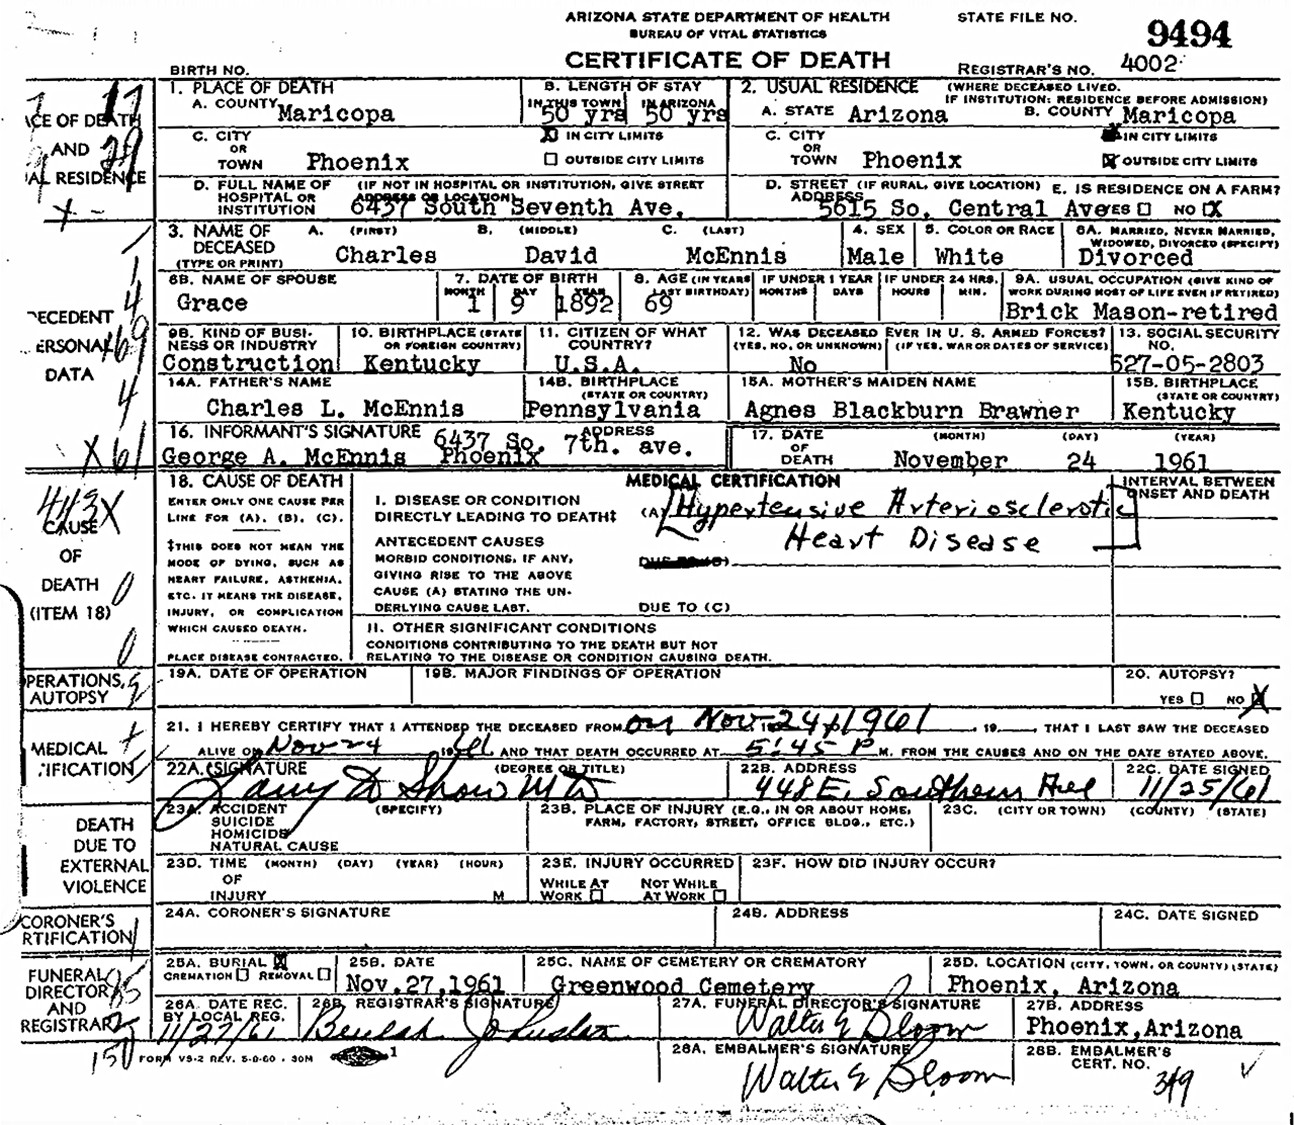 ARIZONA STATE DEPARTMENT OF HEALTH
BUREAU OF VITAL STATISTICS
CERTIFICATE OF DEATH
STATE FILE NO. 9494
BIRTH NO.
REGISTRAR'S NO. 4002
1. PLACE OF DEATH
A. COUNTY Maricopa
B. LENGTH OF STAY
IN THIS TOWN 50 yrs IN ARIZONA 50 yrs
2. USUAL RESIDENCE (WHERE DECEASED LIVED. IF INSTITUTION: RESIDENCE BEFORE ADMISSION)
A. STATE Arizona B. COUNTY Maricopa
C. CITY OR TOWN Phoenix
IN CITY LIMITS
OUTSIDE CITY LIMITS
C. CITY OR TOWN Phoenix
IN CITY LIMITS
OUTSIDE CITY LIMITS
D. FULL NAME OF HOSPITAL OR INSTITUTION (IF NOT IN HOSPITAL OR INSTITUTION, GIVE STREET ADDRESS OR LOCATION)
6437 South Seventh Ave.
D. STREET ADDRESS (IF RURAL, GIVE LOCATION) 5615 So. Central Ave
E. IS RESIDENCE ON A FARM? YES NO X
3. NAME OF DECEASED (TYPE OR PRINT)
A. (FIRST) Charles B. (MIDDLE) David C. (LAST) McEnnis
4. SEX Male
5. COLOR OR RACE White
6A. MARRIED, NEVER MARRIED, WIDOWED, DIVORCED (SPECIFY) Divorced
6B. NAME OF SPOUSE Grace
7. DATE OF BIRTH MONTH 1 DAY 9 YEAR 1892
8. AGE (IN YEARS LAST BIRTHDAY) 69
IF UNDER 1 YEAR MONTHS DAYS
IF UNDER 24 HRS. HOURS MIN.
9A. USUAL OCCUPATION (GIVE KIND OF WORK DURING MOST OF LIFE EVEN IF RETIRED)
Brick Mason-retired
9B. KIND OF BUSINESS OR INDUSTRY Construction
10. BIRTHPLACE (STATE OR FOREIGN COUNTRY) Kentucky
11. CITIZEN OF WHAT COUNTRY? U.S.A.
12. WAS DECEASED EVER IN U. S. ARMED FORCES?
(YES, NO, OR UNKNOWN) No (IF YES, WAR OR DATES OF SERVICE)
13. SOCIAL SECURITY NO. 527-05-2803
14A. FATHER'S NAME Charles L. McEnnis
14B. BIRTHPLACE (STATE OR COUNTRY) Pennsylvania
15A. MOTHER'S MAIDEN NAME Agnes Blackburn Brawner
15B. BIRTHPLACE (STATE OR COUNTRY) Kentucky
16. INFORMANT'S SIGNATURE George A. McEnnis
ADDRESS 6437 So. 7th. ave. Phoenix
17. DATE OF DEATH (MONTH) November (DAY) 24 (YEAR) 1961
18. CAUSE OF DEATH
ENTER ONLY ONE CAUSE PER LINE FOR (A), (B), (C).
‡THIS DOES NOT MEAN THE MODE OF DYING, SUCH AS HEART FAILURE, ASTHENIA, ETC. IT MEANS THE DISEASE, INJURY, OR COMPLICATION WHICH CAUSED DEATH.
PLACE DISEASE CONTRACTED.
MEDICAL CERTIFICATION
INTERVAL BETWEEN ONSET AND DEATH
I. DISEASE OR CONDITION DIRECTLY LEADING TO DEATH‡
(A) Hypertensive Arteriosclerotic
Heart Disease
ANTECEDENT CAUSES
MORBID CONDITIONS, IF ANY, GIVING RISE TO THE ABOVE CAUSE (A) STATING THE UNDERLYING CAUSE LAST.
DUE TO (B)
DUE TO (C)
II. OTHER SIGNIFICANT CONDITIONS
CONDITIONS CONTRIBUTING TO THE DEATH BUT NOT RELATING TO THE DISEASE OR CONDITION CAUSING DEATH.
19A. DATE OF OPERATION
19B. MAJOR FINDINGS OF OPERATION
20. AUTOPSY?
YES NO X
21. I HEREBY CERTIFY THAT I ATTENDED THE DECEASED FROM on Nov. 24, 1961, 19 , THAT I LAST SAW THE DECEASED
ALIVE ON Nov 24 1961 AND THAT DEATH OCCURRED AT 5:45 P M. FROM THE CAUSES AND ON THE DATE STATED ABOVE.
22A. (SIGNATURE (DEGREE OR TITLE)
22B. ADDRESS 448 E. Southern Ave
22C. DATE SIGNED 11/25/61
23A. ACCIDENT SUICIDE HOMICIDE NATURAL CAUSE (SPECIFY)
23B. PLACE OF INJURY (E.G., IN OR ABOUT HOME, FARM, FACTORY, STREET, OFFICE BLDG., ETC.)
23C. (CITY OR TOWN) (COUNTY) (STATE)
23D. TIME OF INJURY (MONTH) (DAY) (YEAR) (HOUR) M
23E. INJURY OCCURRED
WHILE AT WORK NOT WHILE AT WORK
23F. HOW DID INJURY OCCUR?
24A. CORONER'S SIGNATURE
24B. ADDRESS
24C. DATE SIGNED
25A. BURIAL X CREMATION REMOVAL
25B. DATE Nov.27,1961
25C. NAME OF CEMETERY OR CREMATORY Greenwood Cemetery
25D. LOCATION (CITY, TOWN, OR COUNTY) (STATE) Phoenix, Arizona
26A. DATE REC. BY LOCAL REG. 11/27/61
26B. REGISTRAR'S SIGNATURE Beulah Johnston
27A. FUNERAL DIRECTOR'S SIGNATURE Walter E Bloom
27B. ADDRESS Phoenix,Arizona
28A. EMBALMER'S SIGNATURE Walter E Bloom
28B. EMBALMER'S CERT. NO. 349
FORM VS-2 REV. 5-0-60 . 30M
ACE OF DEATH AND AL RESIDENCE
DECEDENT PERSONAL DATA
CAUSE OF DEATH (ITEM 18)
443X
OPERATIONS, AUTOPSY
MEDICAL TIFICATION
DEATH DUE TO EXTERNAL VIOLENCE
CORONER'S RTIFICATION
FUNERAL DIRECTOR AND REGISTRAR